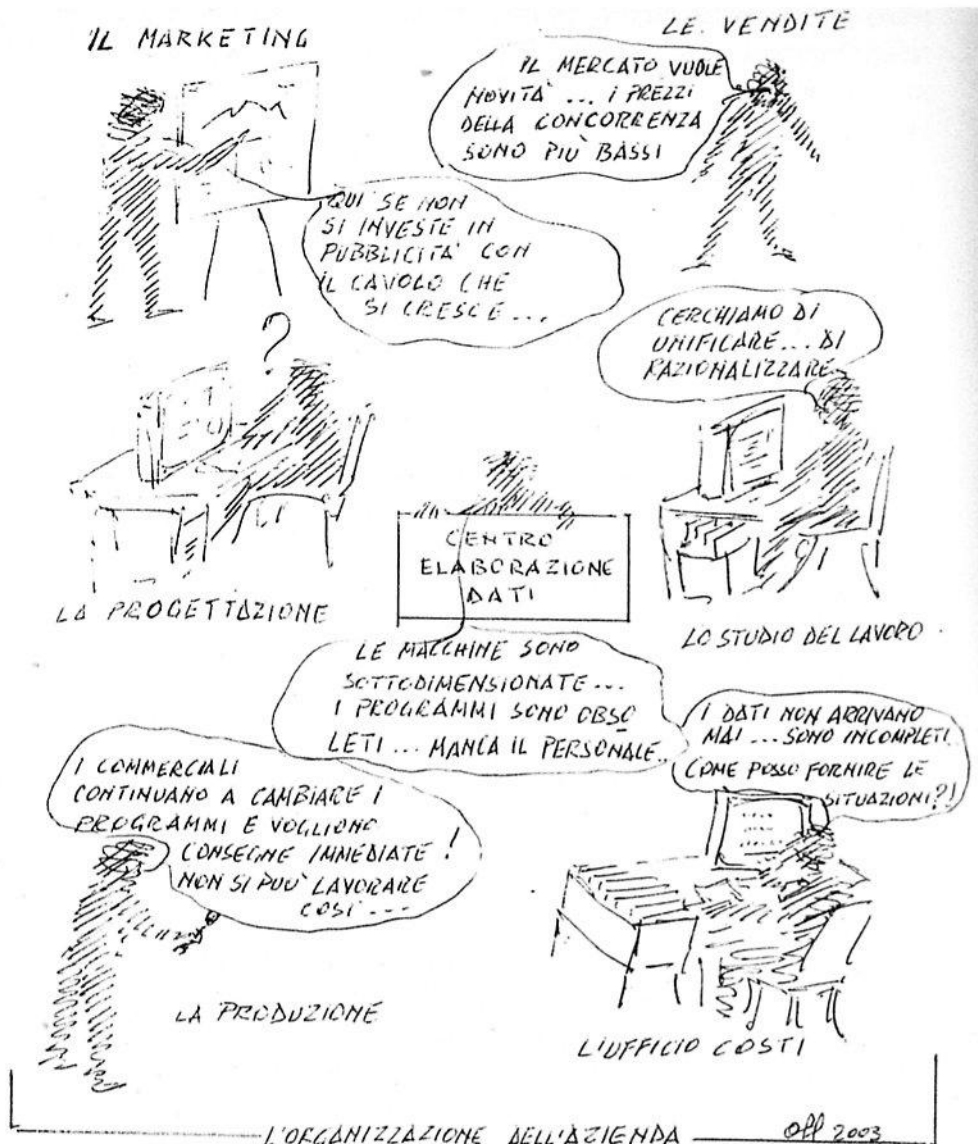 IL MARKETING
LE VENDITE
IL MERCATO VUOLE
NOVITÀ ... I PREZZI
DELLA CONCORRENZA
SONO PIÙ BASSI
QUI SE NON
SI INVESTE IN
PUBBLICITÀ CON
IL CAVOLO CHE
SI CRESCE...
?
CERCHIAMO DI
UNIFICARE... DI
RAZIONALIZZARE
LA PROGETTAZIONE
CENTRO
ELABORAZIONE
DATI
LO STUDIO DEL LAVORO
LE MACCHINE SONO
SOTTODIMENSIONATE...
I PROGRAMMI SONO OBSO
LETI... MANCA IL PERSONALE..
I DATI NON ARRIVANO
MAI... SONO INCOMPLETI
COME POSSO FORNIRE LE
SITUAZIONI?!
I COMMERCIALI
CONTINUANO A CAMBIARE I
PROGRAMMI E VOGLIONO
CONSEGNE IMMEDIATE!
NON SI PUÒ LAVORARE
COSÌ...
LA PRODUZIONE
L'UFFICIO COSTI
L'ORGANIZZAZIONE DELL'AZIENDA
2003